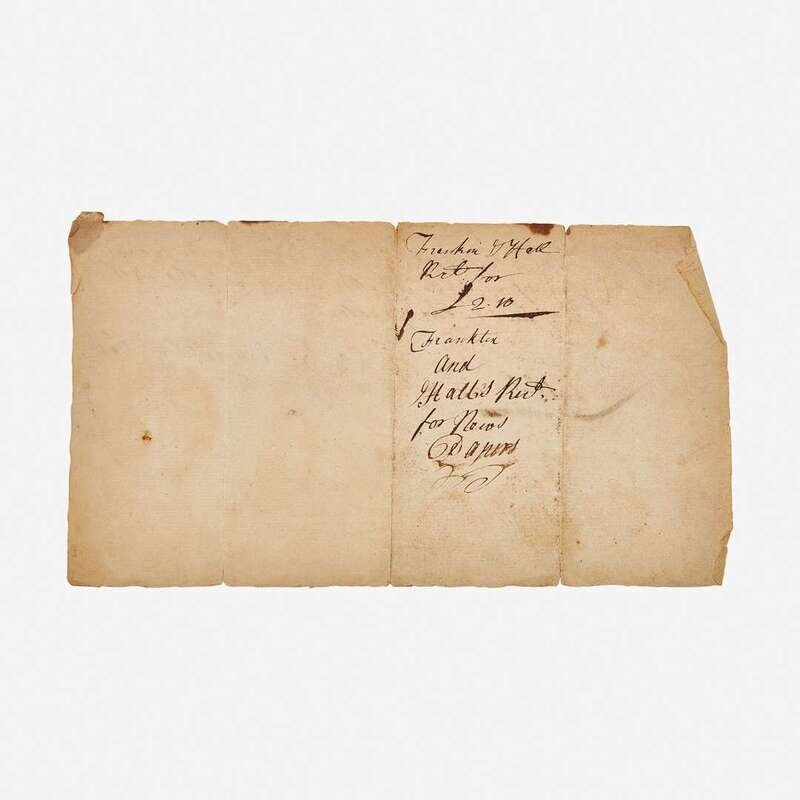 Franklin & Hall
Rect. for
£ 2.10
Franklin
and
Hall's Rect.
for News
Papers